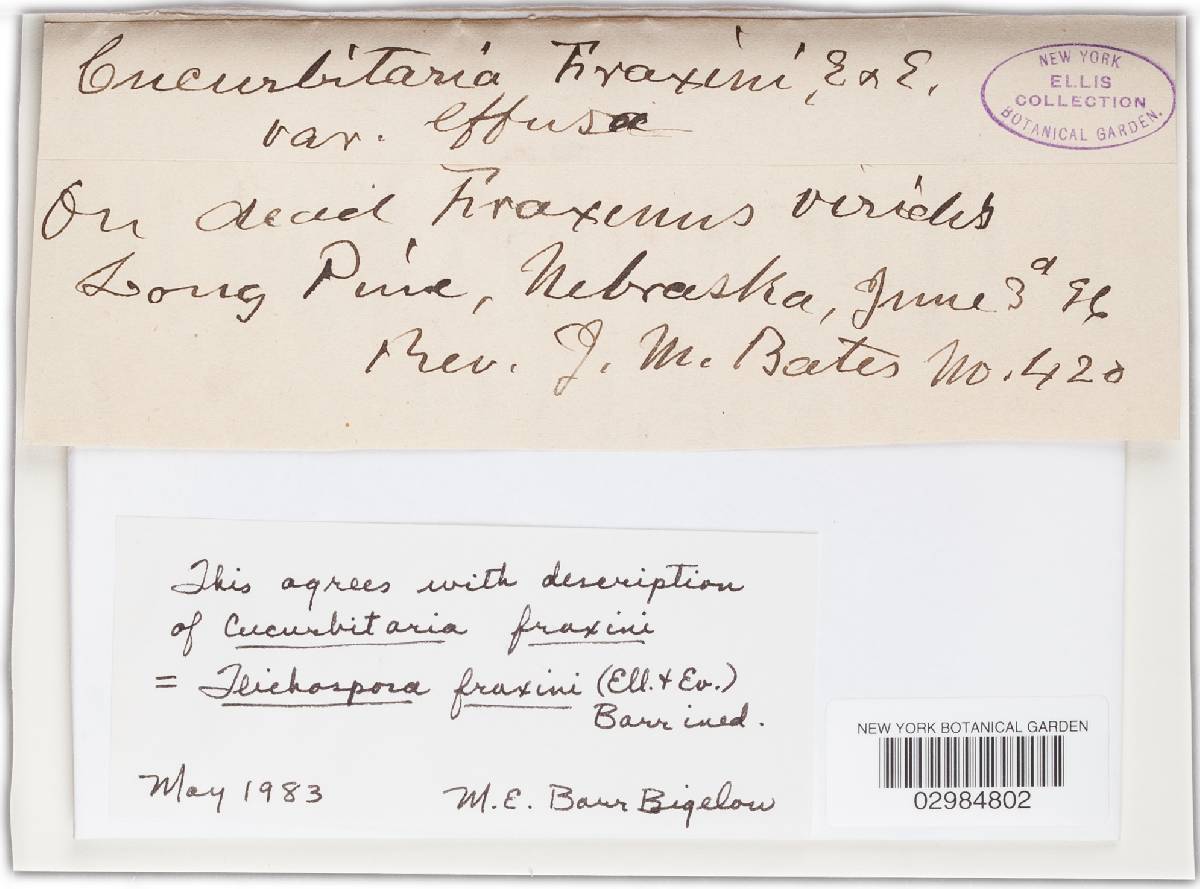 Cucurbitaria Fraxini, E & E,
var. effusa
NEW YORK
ELLIS
COLLECTION
BOTANICAL GARDEN.
On dead Fraxinus viridis
Long Pine, Nebraska, June 3d 96
Rev. J. M. Bates No. 420
This agrees with description
of Cucurbitaria fraxini
= Teichospora fraxini (Ell. & Ev.)
Barr ined.
May 1983 M.E. Barr Bigelow
NEW YORK BOTANICAL GARDEN
02984802